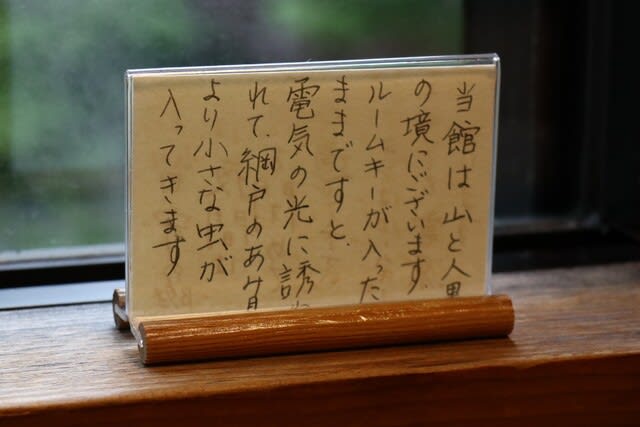 当館は山と人里
の境にございます。
ルームキーが入った
ままですと、
電気の光に誘わ
れて、網戸のあみ目
より小さな虫が
入ってきます